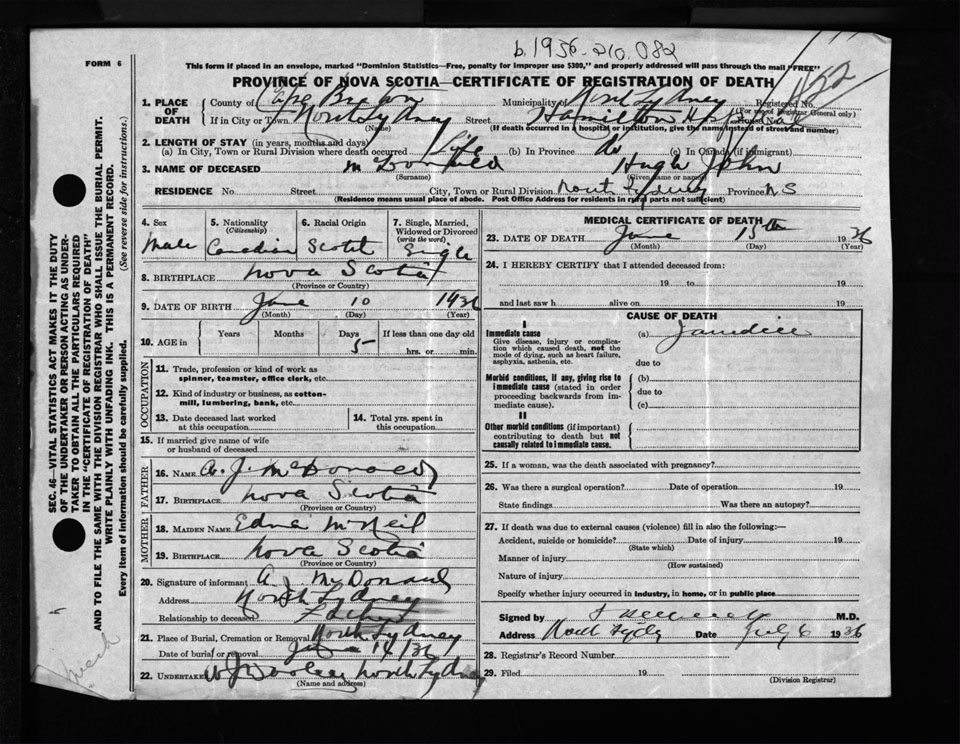 b. 1936-210,082
FORM 6
This form if placed in an envelope, marked "Dominion Statistics—Free, penalty for improper use $300," and properly addressed will pass through the mail "FREE"
PROVINCE OF NOVA SCOTIA—CERTIFICATE OF REGISTRATION OF DEATH
452
1. PLACE OF DEATH
County of Cape Breton Municipality of North Sydney Registered No.
(For use of Registrar General only)
If in City or Town North Sydney Street Hamilton Hospital House No.
(Name) (If death occurred in a hospital or institution, give the name instead of street and number)
2. LENGTH OF STAY (in years, months and days)
(a) In City, Town or Rural Division where death occurred Life (b) In Province do (c) In Canada (if immigrant)
3. NAME OF DECEASED McDonald Hugh John
(Surname) (Given name or names)
RESIDENCE No. Street City, Town or Rural Division North Sydney Province NS
(Residence means usual place of abode. Post Office Address for residents in rural parts not sufficient)
4. Sex
Male
5. Nationality
(Citizenship)
Canadian
6. Racial Origin
Scotch
7. Single, Married, Widowed or Divorced
(write the word)
Single
8. BIRTHPLACE Nova Scotia
(Province or Country)
9. DATE OF BIRTH June 10 1936
(Month) (Day) (Year)
10. AGE in
Years Months Days If less than one day old
5 hrs. or min.
OCCUPATION
11. Trade, profession or kind of work as spinner, teamster, office clerk, etc.
12. Kind of industry or business, as cotton-mill, lumbering, bank, etc.
13. Date deceased last worked at this occupation
14. Total yrs. spent in this occupation
15. If married give name of wife or husband of deceased
FATHER
16. NAME A. J. McDonald
17. BIRTHPLACE Nova Scotia
(Province or Country)
MOTHER
18. MAIDEN NAME Edna McNeil
19. BIRTHPLACE Nova Scotia
(Province or Country)
20. Signature of informant A. J. McDonald
Address North Sydney
Relationship to deceased Father
21. Place of Burial, Cremation or Removal North Sydney
Date of burial or removal June 14/36
22. UNDERTAKER North Sydney
(Name and address)
MEDICAL CERTIFICATE OF DEATH
23. DATE OF DEATH June 15th 1936
(Month) (Day) (Year)
24. I HEREBY CERTIFY that I attended deceased from:
19 to 19
and last saw h alive on 19
CAUSE OF DEATH
I
Immediate cause
Give disease, injury or complication which caused death, not the mode of dying, such as heart failure, asphyxia, asthenia, etc.
(a) Jaundice
due to
Morbid conditions, if any, giving rise to immediate cause (stated in order proceeding backwards from immediate cause).
(b)
due to
(c)
II
Other morbid conditions (if important) contributing to death but not causally related to immediate cause.
25. If a woman, was the death associated with pregnancy?
26. Was there a surgical operation? Date of operation 19
State findings Was there an autopsy?
27. If death was due to external causes (violence) fill in also the following:—
Accident, suicide or homicide? Date of injury 19
(State which)
Manner of injury
(How sustained)
Nature of injury
Specify whether injury occurred in industry, in home, or in public place
Signed by M.D.
Address North Sydney Date July 6 1936
28. Registrar's Record Number
29. Filed 19
(Division Registrar)
SEC. 46—VITAL STATISTICS ACT MAKES IT THE DUTY
OF THE UNDERTAKER OR PERSON ACTING AS UNDER-
TAKER TO OBTAIN ALL THE PARTICULARS REQUIRED
IN THE "CERTIFICATE OF REGISTRATION OF DEATH"
AND TO FILE THE SAME WITH THE DIVISION REGISTRAR WHO SHALL ISSUE THE BURIAL PERMIT.
WRITE PLAINLY WITH UNFADING INK. THIS IS A PERMANENT RECORD.
Every item of information should be carefully supplied. (See reverse side for instructions.)